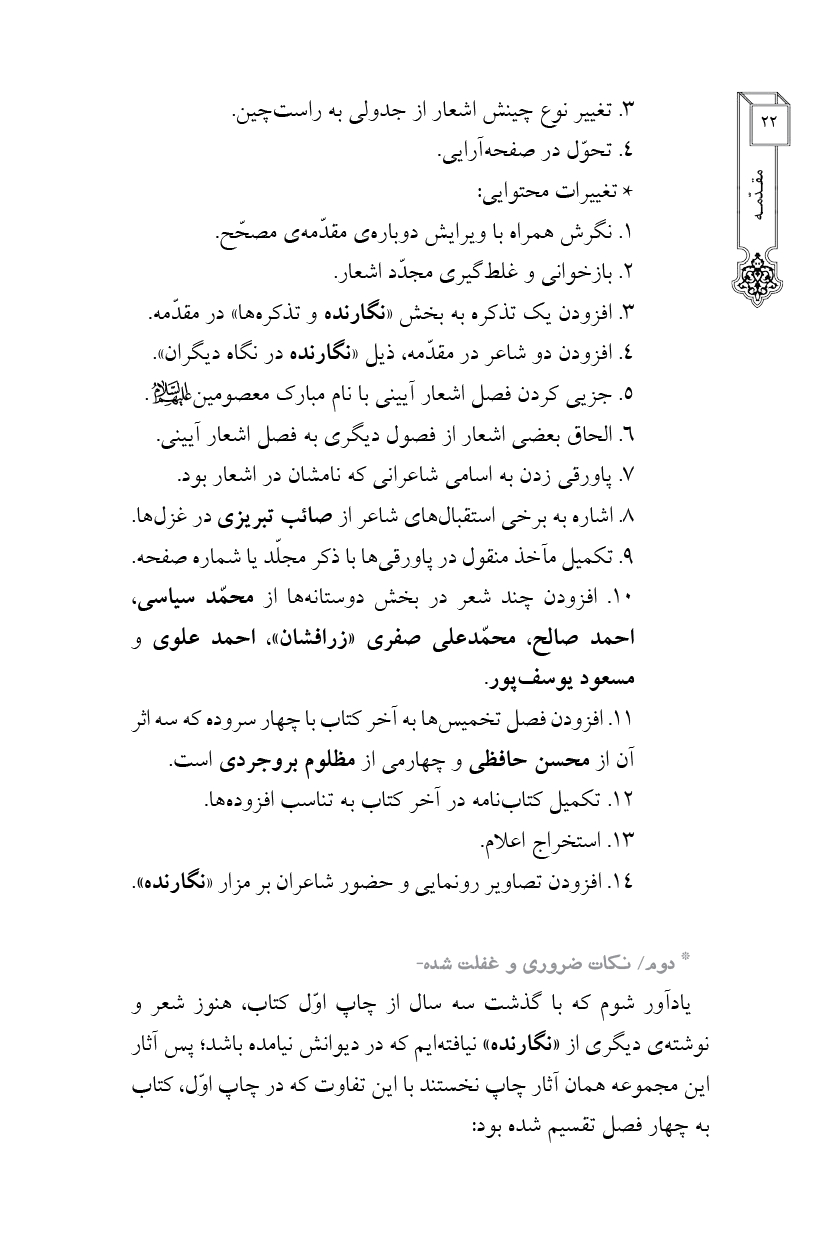 ۲۲
مقدّمه
۳. تغییر نوع چینش اشعار از جدولی به راست‌چین.
۴. تحوّل در صفحه‌آرایی.
* تغییرات محتوایی:
۱. نگرش همراه با ویرایش دوباره‌ی مقدّمه‌ی مصحّح.
۲. بازخوانی و غلط‌گیری مجدّد اشعار.
۳. افزودن یک تذکره به بخش «نگارنده و تذکره‌ها» در مقدّمه.
۴. افزودن دو شاعر در مقدّمه، ذیل «نگارنده در نگاه دیگران».
۵. جزیی کردن فصل اشعار آیینی با نام مبارک معصومین علیهم‌السلام.
۶. الحاق بعضی اشعار از فصول دیگری به فصل اشعار آیینی.
۷. پاورقی زدن به اسامی شاعرانی که نامشان در اشعار بود.
۸. اشاره به برخی استقبال‌های شاعر از صائب تبریزی در غزل‌ها.
۹. تکمیل مآخذ منقول در پاورقی‌ها با ذکر مجلّد یا شماره صفحه.
۱۰. افزودن چند شعر در بخش دوستانه‌ها از محمّد سیاسی،
احمد صالح، محمّدعلی صفری «زرافشان»، احمد علوی و
مسعود یوسف‌پور.
۱۱. افزودن فصل تخمیس‌ها به آخر کتاب با چهار سروده که سه اثر
آن از محسن حافظی و چهارمی از مظلوم بروجردی است.
۱۲. تکمیل کتاب‌نامه در آخر کتاب به تناسب افزوده‌ها.
۱۳. استخراج اعلام.
۱۴. افزودن تصاویر رونمایی و حضور شاعران بر مزار «نگارنده».
* دوم/ نکات ضروری و غفلت شده-
یادآور شوم که با گذشت سه سال از چاپ اوّل کتاب، هنوز شعر و
نوشته‌ی دیگری از «نگارنده» نیافته‌ایم که در دیوانش نیامده باشد؛ پس آثار
این مجموعه همان آثار چاپ نخستند با این تفاوت که در چاپ اوّل، کتاب
به چهار فصل تقسیم شده بود: